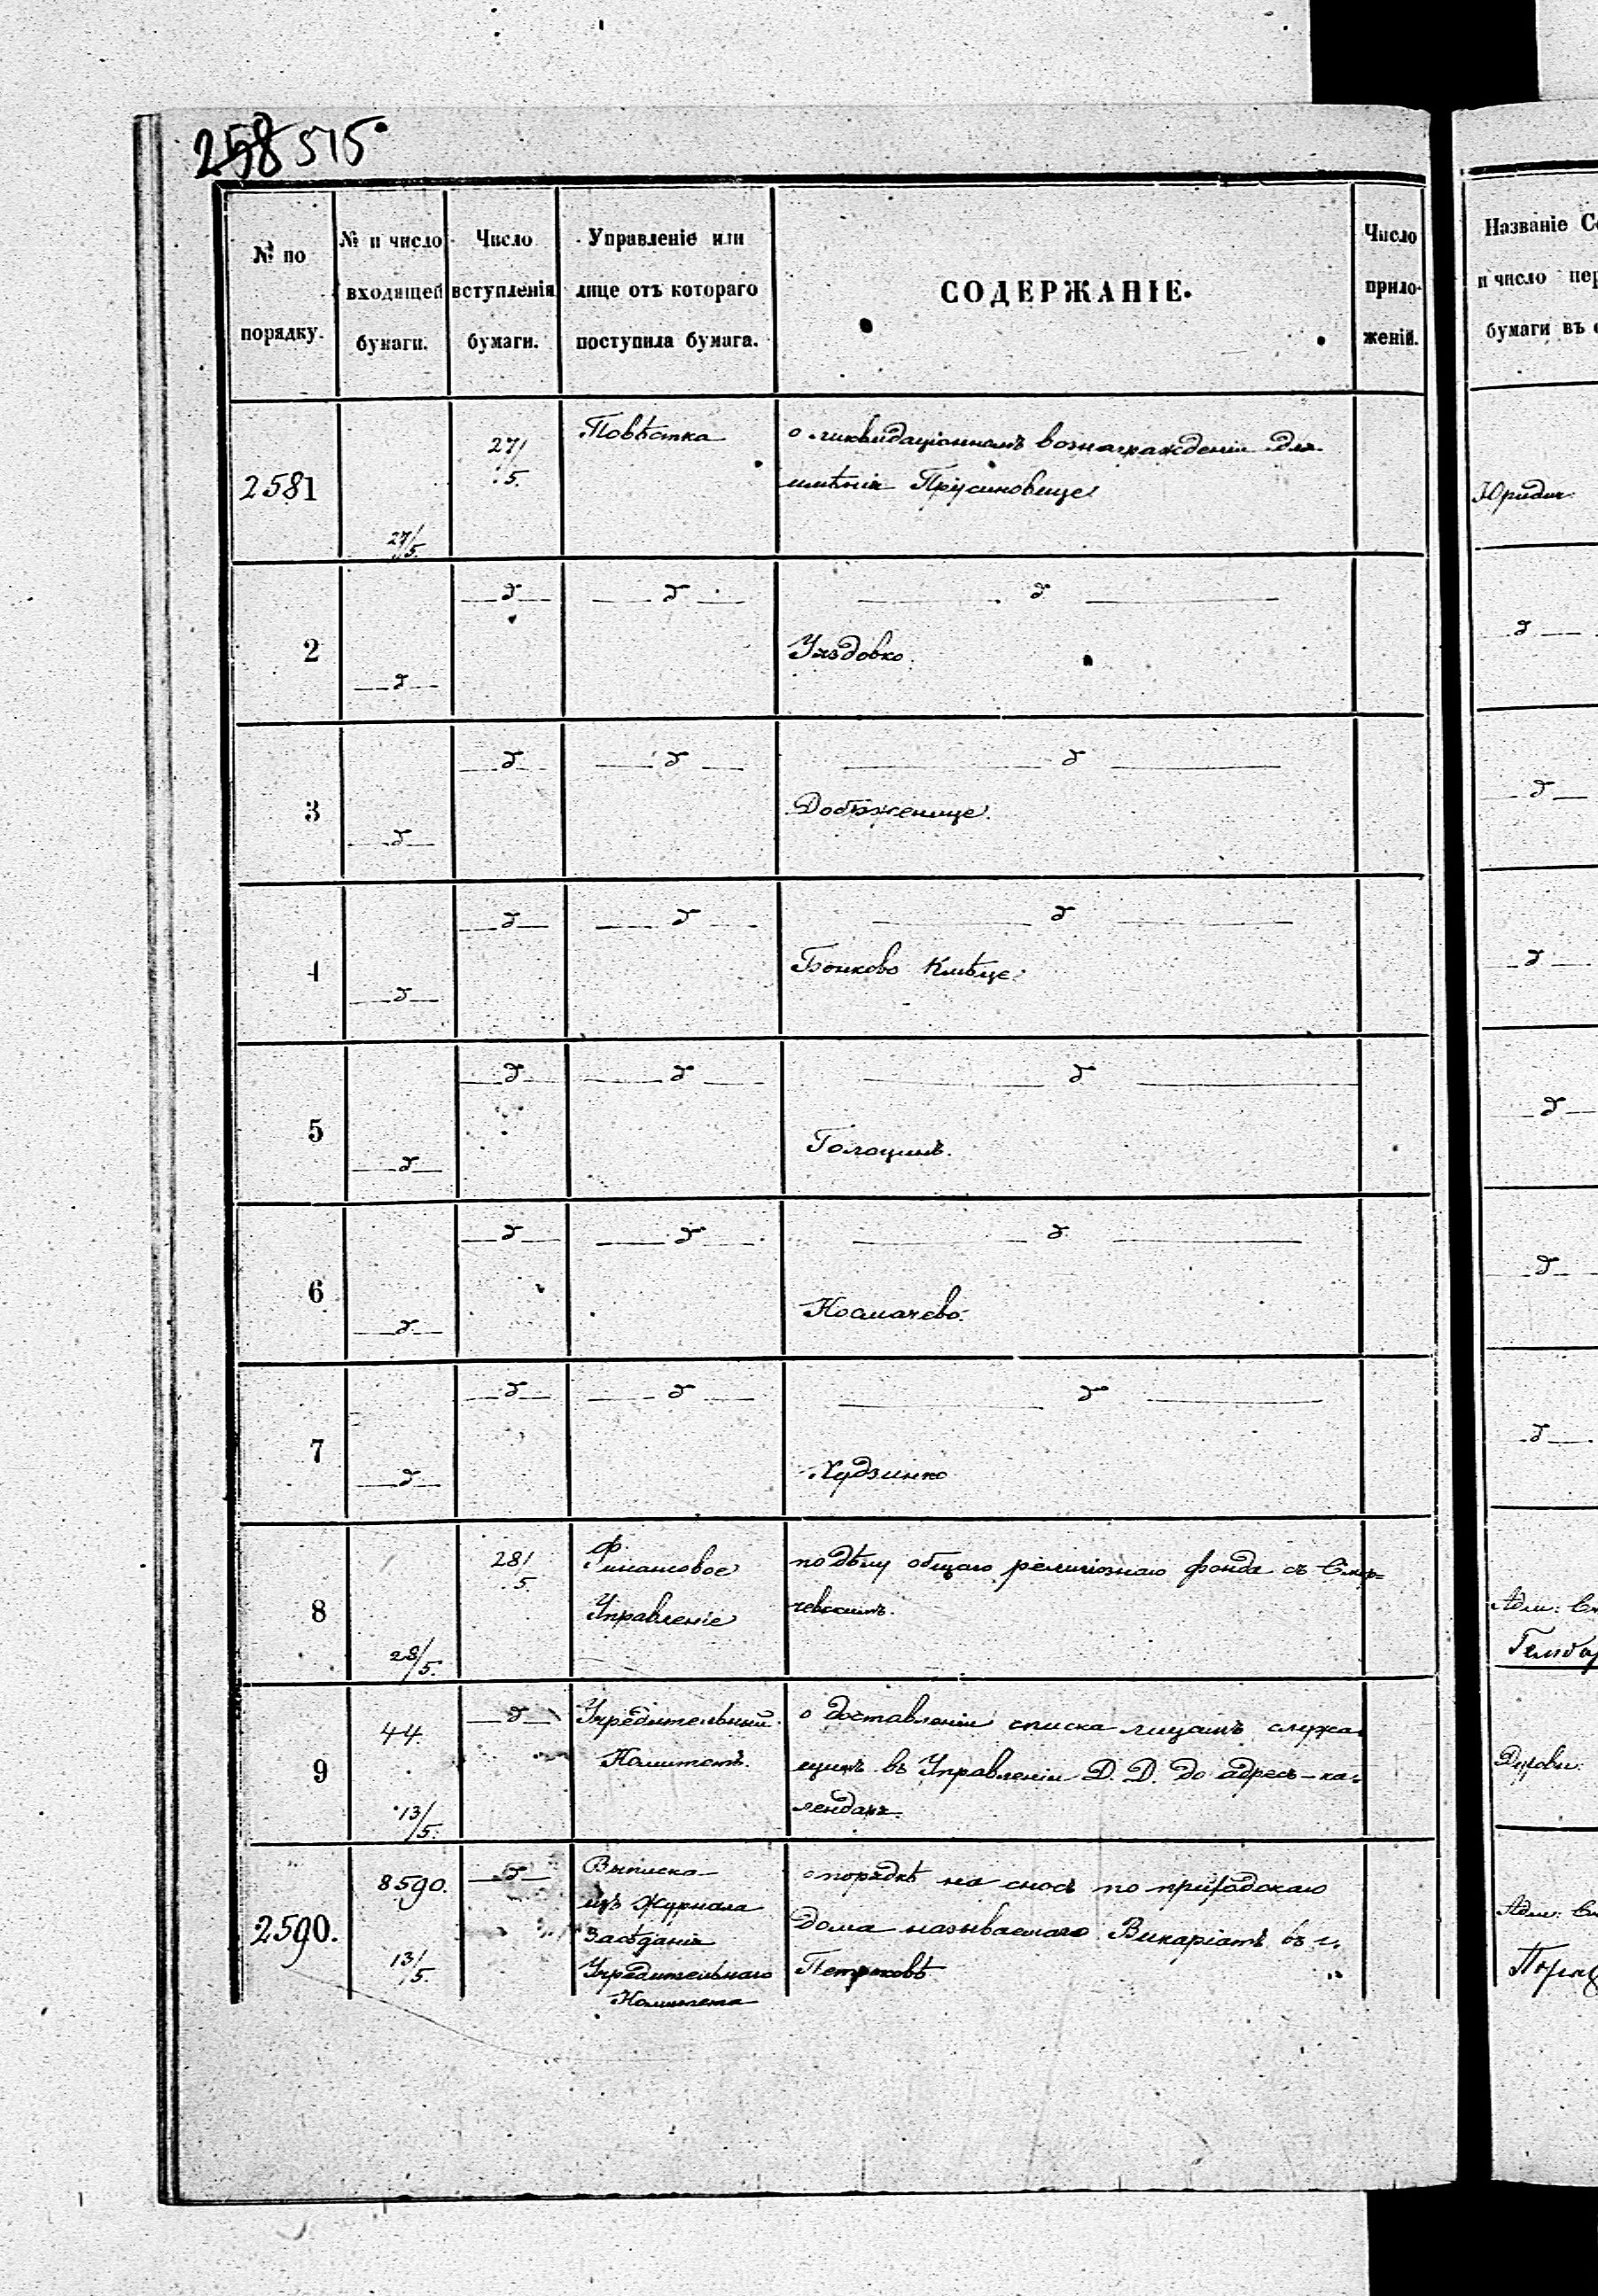 258 515
№ по порядку.
№ и число входящей бумаги.
Число вступленія бумаги.
Управленіе или лице отъ котораго поступила бумага.
СОДЕРЖАНІЕ.
Число приложеній.
2581
27/5.
27/5.
Повѣстка
о ликвидаціонномъ вознагражденіи для
имѣнія Прусиновице
2
д
д
д
д
Уяздовко.
3
д
д
д
д
4
д
д
д
д
Боиково
5
д
д
д
д
Голоцинъ.
6
д
д
д
д
Космачево.
7
д
д
д
д
Худзинко
8
28/5.
28/5.
Финансовое
Управленіе
по дѣлу общаго религіознаго фонда съ
9
44.
13/5.
д
Учредительный
Комитетъ.
о доставленіи списка лицамъ служа-
щимъ въ Управленіи Д. Д. до адресъ-ка-
лендаря.
2590.
8590.
13/5.
д
Выписка
изъ журнала
Засѣданія
Учредительнаго
Комитета
о порядкѣ на сносъ по
дома называемаго Викаріатъ въ г.
Петроковѣ
Названіе
и число
бумаги въ
Юридич.
д
д
д
д
д
д
Адм: